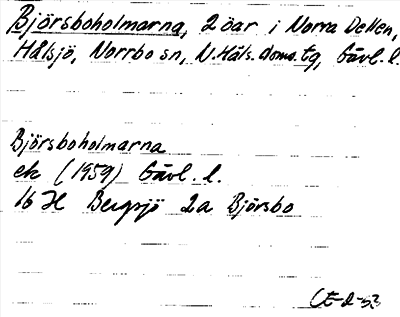 Björsboholmarna, 2 öar i Norra Dellen,
Hålsjö, Norrbo sn, N.Häls.doms.tg, Gävl.l.
Björsboholmarna
ek (1959) Gävl.l.
16 H Bergsjö 2a Björsbo